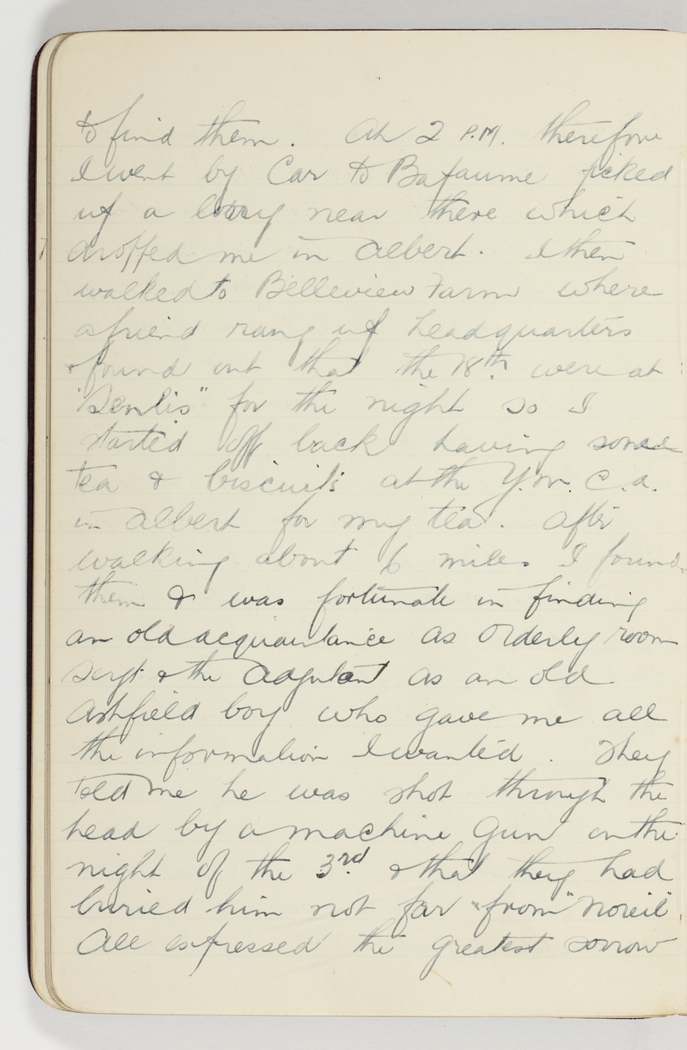 to find them. At 2 P.M. therefore
I went by Car to Bapaume picked
up a lorry near there which
dropped me in Albert. I then
walked to Belleview Farm where
a friend rang up headquarters
& found out that the 18th were at
"Senlis" for the night so I
started off back having some
tea & biscuits at the Y.M.C.A.
in Albert for my tea. After
walking about 6 miles I found
them & was fortunate in finding
an old acquaintance as Orderly room
Sergt & the Adjutant as an old
Ashfield boy who gave me all
the information I wanted. They
told me he was shot through the
head by a machine Gun on the
night of the 3rd & that they had
buried him not far "from" Noreil"
All expressed the greatest sorrow